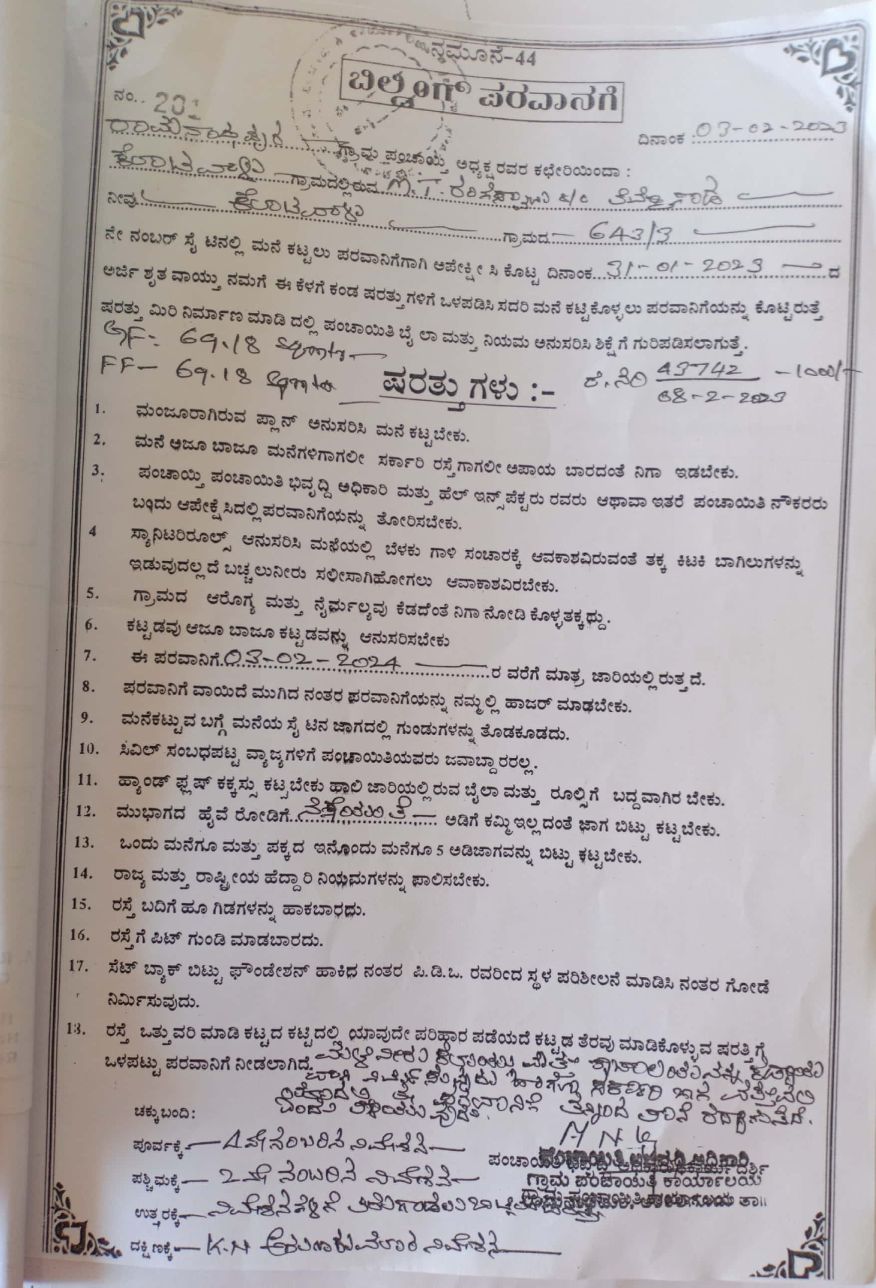 ನಮೂನೆ-44
ಬಿಲ್ಡಿಂಗ್ ಪರವಾನಗಿ
ನಂ.. 201
ದಿನಾಂಕ : 03-02-2023
ಗ್ರಾಮ ಪಂಚಾಯ್ತಿ ಅಧ್ಯಕ್ಷರವರ ಕಛೇರಿಯಿಂದಾ :
ಗ್ರಾಮದಲ್ಲಿರುವ M.T.
ನೀವು ಗ್ರಾಮದ 643/3
ನೇ ನಂಬರ್ ಸೈಟಿನಲ್ಲಿ ಮನೆ ಕಟ್ಟಲು ಪರವಾನಿಗೆಗಾಗಿ ಅಪೇಕ್ಷೀಸಿ ಕೊಟ್ಟ ದಿನಾಂಕ 31-01-2023 ದ
ಅರ್ಜಿ ಶೃತ ವಾಯ್ತು ನಮಗೆ ಈ ಕೆಳಗೆ ಕಂಡ ಷರತ್ತುಗಳಿಗೆ ಒಳಪಡಿಸಿ ಸದರಿ ಮನೆ ಕಟ್ಟಿಕೊಳ್ಳಲು ಪರವಾನಿಗೆಯನ್ನು ಕೊಟ್ಟಿರುತ್ತೆ
ಷರತ್ತು ಮಿರಿ ನಿರ್ಮಾಣ ಮಾಡಿ ದಲ್ಲಿ ಪಂಚಾಯಿತಿ ಬೈ ಲಾ ಮತ್ತು ನಿಯಮ ಅನುಸರಿಸಿ ಶಿಕ್ಷೆ ಗೆ ಗುರಿಪಡಿಸಲಾಗುತ್ತೆ.
GF- 69.18 Sqmts
FF- 69.18 Sqmts
ಷರತ್ತುಗಳು :-
ರ.ನಂ 43742 - 1000/-
08-2-2023
1. ಮಂಜೂರಾಗಿರುವ ಪ್ಲಾನ್ ಅನುಸರಿಸಿ ಮನೆ ಕಟ್ಟಬೇಕು.
2. ಮನೆ ಅಜೂ ಬಾಜೂ ಮನೆಗಳಿಗಾಗಲೀ ಸರ್ಕಾರಿ ರಸ್ತೆಗಾಗಲೀ ಅಪಾಯ ಬಾರದಂತೆ ನಿಗಾ ಇಡಬೇಕು.
3. ಪಂಚಾಯ್ತಿ ಪಂಚಾಯಿತಿ ಭಿವೃದ್ದಿ ಅಧಿಕಾರಿ ಮತ್ತು ಹೆಲ್ ಇನ್ಸ್‌ಪೆಕ್ಟರು ರವರು ಆಥಾವಾ ಇತರೆ ಪಂಚಾಯಿತಿ ನೌಕರರು
ಬಂದು ಆಪೇಕ್ಷೆಸಿದಲ್ಲಿ ಪರವಾನಿಗೆಯನ್ನು ತೋರಿಸಬೇಕು.
4 ಸ್ಯಾನಿಟರಿರೂಲ್ಸ್ ಅನುಸರಿಸಿ ಮನೆಯಲ್ಲಿ ಬೆಳಕು ಗಾಳಿ ಸಂಚಾರಕ್ಕೆ ಆವಕಾಶವಿರುವಂತೆ ತಕ್ಕ ಕಿಟಕಿ ಬಾಗಿಲುಗಳನ್ನು
ಇಡುವುದಲ್ಲದೆ ಬಚ್ಚಲುನೀರು ಸಲೀಸಾಗಿಹೋಗಲು ಆವಾಕಾಶವಿರಬೇಕು.
5. ಗ್ರಾಮದ ಆರೊಗ್ಯ ಮತ್ತು ನೈರ್ಮಲ್ಯವು ಕೆಡದಂತೆ ನಿಗಾ ನೋಡಿ ಕೊಳ್ಳತಕ್ಕದ್ದು.
6. ಕಟ್ಟಡವು ಆಜೂ ಬಾಜೂ ಕಟ್ಟಡವನ್ನು ಆನುಸರಿಸಬೇಕು
7. ಈ ಪರವಾನಿಗೆ 03-02-2024 ರ ವರೆಗೆ ಮಾತ್ರ ಜಾರಿಯಲ್ಲಿರುತ್ತದೆ.
8. ಪರವಾನಿಗೆ ವಾಯಿದೆ ಮುಗಿದ ನಂತರ ಪರವಾನಿಗೆಯನ್ನು ನಮ್ಮಲ್ಲಿ ಹಾಜರ್ ಮಾಢಬೇಕು.
9. ಮನೆಕಟ್ಟುವ ಬಗ್ಗೆ ಮನೆಯ ಸೈಟಿನ ಜಾಗದಲ್ಲಿ ಗುಂಡುಗಳನ್ನು ತೊಡಕೂಡದು.
10. ಸಿವಿಲ್ ಸಂಬಧಪಟ್ಟ ವ್ಯಾಜ್ಯಗಳಿಗೆ ಪಂಚಾಯಿತಿಯವರು ಜವಾಬ್ದಾರರಲ್ಲ.
11. ಹ್ಯಾಂಡ್ ಫ್ಲಷ್ ಕಕ್ಕಸ್ಸು ಕಟ್ಟಬೇಕು ಹಾಲಿ ಜಾರಿಯಲ್ಲಿರುವ ಬೈಲಾ ಮತ್ತು ರೂಲ್ಸಿಗೆ ಬದ್ದವಾಗಿರ ಬೇಕು.
12. ಮುಭಾಗದ ಹೈವೆ ರೋಡಿಗೆ ನಕ್ಷೆಯಂತೆ ಅಡಿಗೆ ಕಮ್ಮಿ ಇಲ್ಲದಂತೆ ಜಾಗ ಬಿಟ್ಟು ಕಟ್ಟಬೇಕು.
13. ಒಂದು ಮನೆಗೂ ಮತ್ತು ಪಕ್ಕದ ಇನ್ನೊಂದು ಮನೆಗೂ 5 ಅಡಿಜಾಗವನ್ನು ಬಿಟ್ಟು ಕಟ್ಟಬೇಕು.
14. ರಾಜ್ಯ ಮತ್ತು ರಾಷ್ಟ್ರೀಯ ಹೆದ್ದಾರಿ ನಿಯಮಗಳನ್ನು ಪಾಲಿಸಬೇಕು.
15. ರಸ್ತೆ ಬದಿಗೆ ಹೂ ಗಿಡಗಳನ್ನು ಹಾಕಬಾರದು.
16. ರಸ್ತೆಗೆ ಪಿಟ್ ಗುಂಡಿ ಮಾಡಬಾರದು.
17. ಸೆಟ್ ಬ್ಯಾಕ್ ಬಿಟ್ಟು ಫೌಂಡೇಶನ್ ಹಾಕಿಧ ನಂತರ ಪಿ.ಡಿ.ಒ. ರವರಿಂದ ಸ್ಥಳ ಪರಿಶೀಲನೆ ಮಾಡಿಸಿ ನಂತರ ಗೋಡೆ
ನಿರ್ಮಿಸುವುದು.
18. ರಸ್ತೆ ಒತ್ತುವರಿ ಮಾಡಿ ಕಟ್ಟದ ಕಟ್ಟಿದಲ್ಲಿ ಯಾವುದೇ ಪರಿಹ್ಹಾರ ಪಡೆಯದೆ ಕಟ್ಟಡ ತೆರವು ಮಾಡಿಕೊಳ್ಳುವ ಷರತ್ತಿಗೆ
ಒಳಪಟ್ಟು ಪರವಾನಿಗೆ ನೀಡಲಾಗಿದೆ.
ಚಕ್ಕುಬಂದಿ:
ಪೂರ್ವಕ್ಕೆ 1ನೇ ನಂಬರಿನ ನಿವೇಶನ
ಪಶ್ಚಿಮಕ್ಕೆ 2ನೇ ನಂಬರಿನ ನಿವೇಶನ
ಗ್ರಾಮ ಪಂಚಾಯಿತಿ ಕಾರ್ಯಾಲಯ
ಉತ್ತರಕ್ಕೆ
ದಕ್ಷಿಣಕ್ಕೆ K.N ನಿವೇಶನ